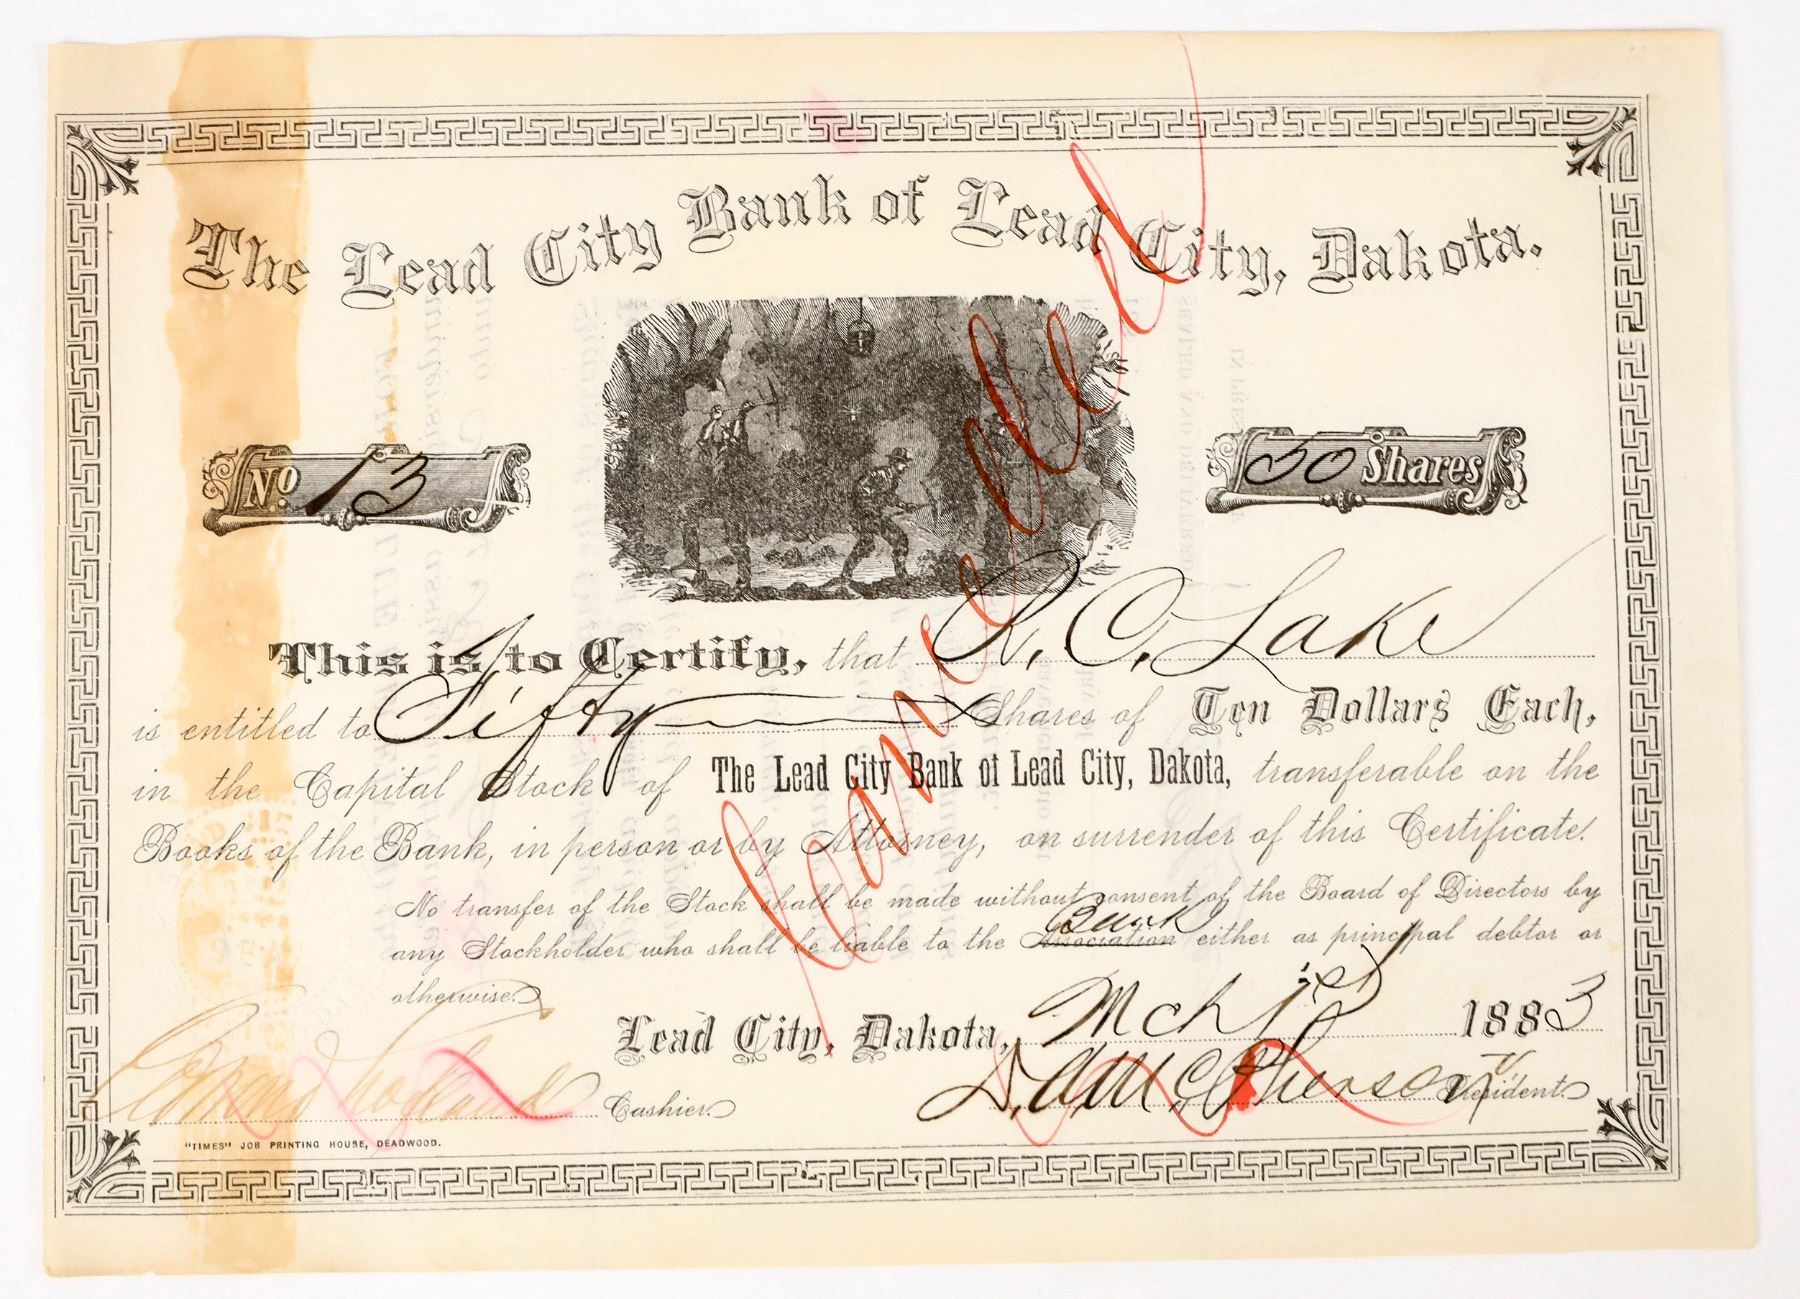 The Lead City Bank of Lead City, Dakota.
No. 13
50 Shares
This is to Certify, that R. C. Lake
is entitled to Fifty Shares of Ten Dollars Each,
in the Capital Stock of The Lead City Bank of Lead City, Dakota, transferable on the
Books of the Bank, in person or by Attorney, on surrender of this Certificate.
No transfer of the Stock shall be made without consent of the Board of Directors by
Bank
any Stockholder who shall be liable to the Association either as principal debtor or
otherwise.
Lead City, Dakota, Mch 1st 1883
Cashier.
D. A. McPherson V. President.
"TIMES" JOB PRINTING HOUSE, DEADWOOD.
Cancelled